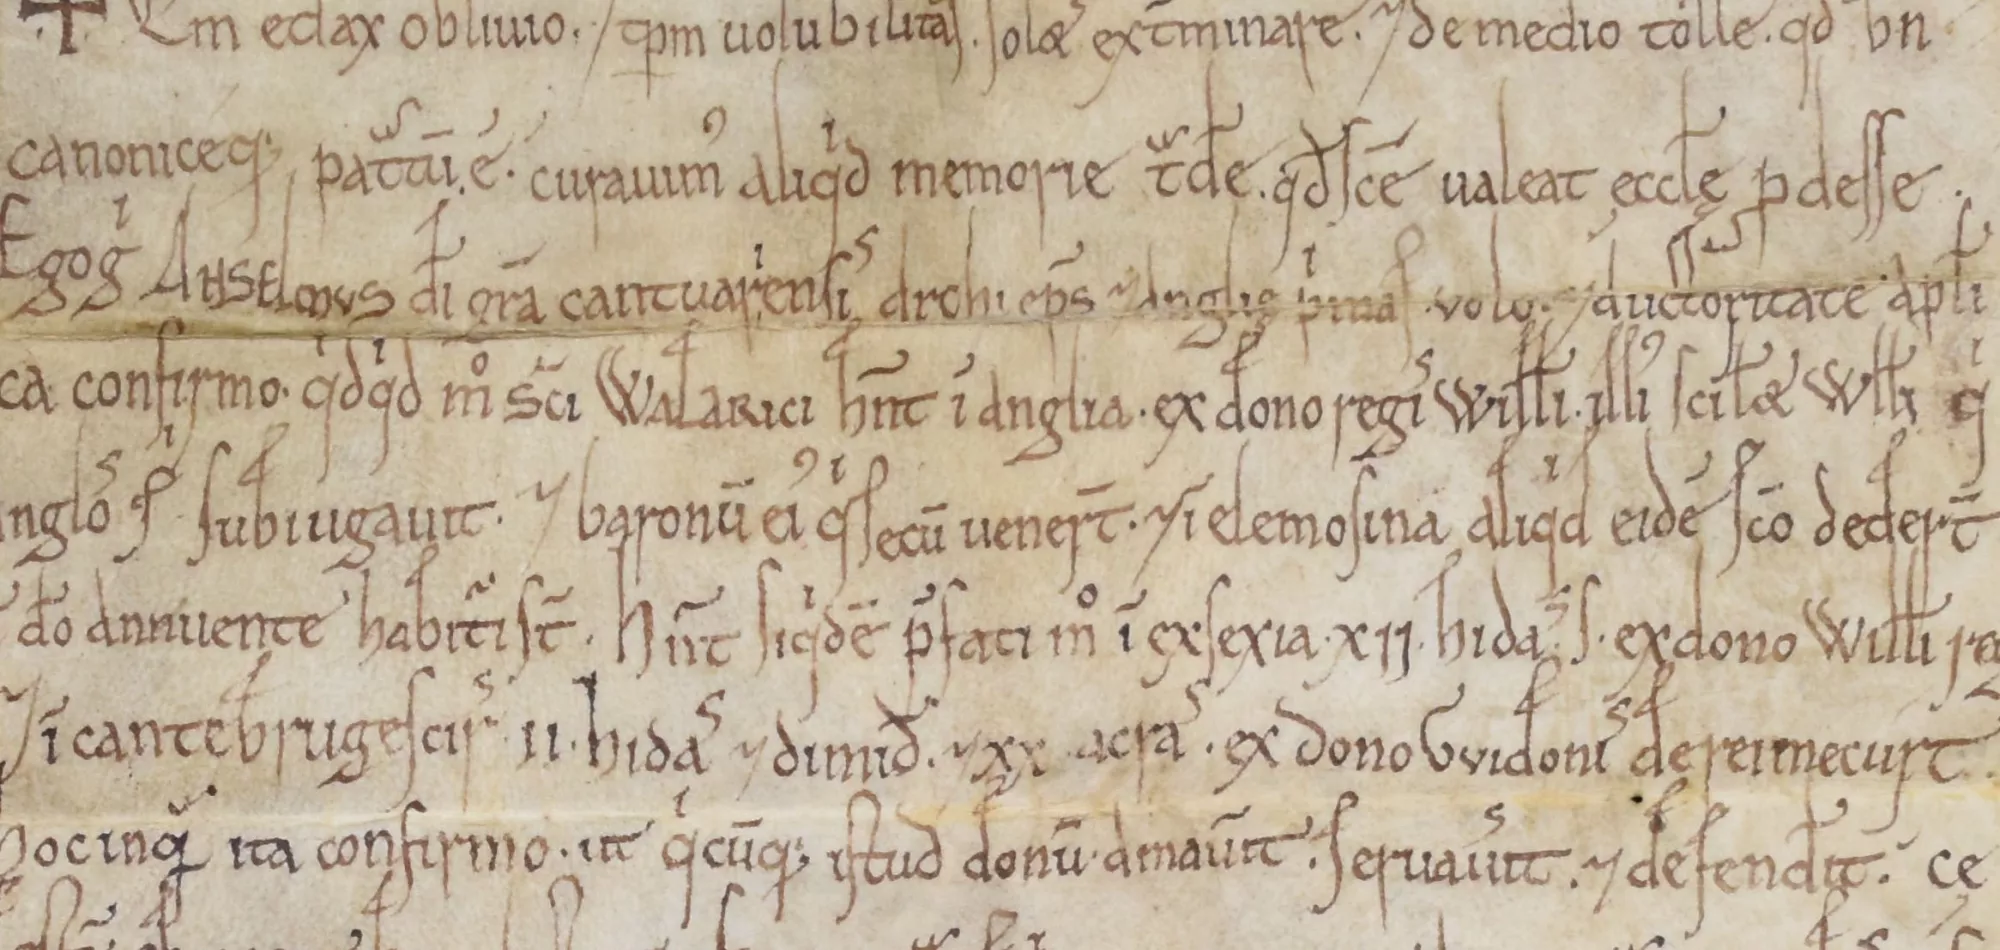 ✝ Em edax obliuio. / tp̄m uolubilitas. solæ ext̄minare. ⁊ de medio tolle. qd bn
canoniceq; patᷓtū. ē. curauim᾽ aliqͥd memorie tᷓde. qd̵ sc̄e ualeat eccl̵ę p̱desse.
Egogͥ Anselmus di gr̄a cantuariensis archi ep̄s ⁊ Anglię pͥmas. uolo. ⁊ auctoritate apl̵i
ca confirmo. qͥdqͥd mͦ sc̄i Walarici hn̄t ī anglia. ex dono regis Willi. illi᾽ scilicæ Willi qͥ
nglos sͥ subiugauit. ⁊ baronū ei᾽ qͥ secū uenert̄. ⁊ ī elemosina aliqͥd eidē sc̄o dedert̄
do annuente habitᷓi st̄. hn̄t siqͥdē p̄fati mͦ ī exsexia. xii. hidas. s. ex dono Willi re
⁊ ī cantebrugescirͬ ii. hidas ⁊ dimid̵. ⁊ xx acras. ex dono Vvidonis de reimecurt.
hocinqᷓ ita confirmo. ut qͥcūq; istud donū amau̅it. seruau̅it. ⁊ defend̅it. ce